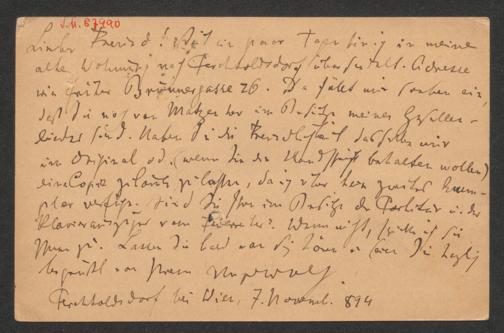 J.N. 67990
Lieber Freund! Seit ein paar Tagen bin ich in meine
alte Wohnung nach Perchtoldsdorf übersiedelt. Adresse
wie früher Brunnergasse 26. Da fällt mir soeben ein,
daß Sie noch von her im Besitze meines Gesellen-
liedes sind. Haben Sie die Freundlichkeit dasselbe mir
im Original od. (wenn Sie die Handschrift behalten wollen)
eine Copie gehen zu lassen, da ich über kein zweites Exem-
plar verfüge. Sind Sie schon im Besitze der Partitur u. des
Klavierauszuges vom Wenn nicht, schicke ich sie
Ihnen zu. Lassen Sie bald was hören u. seien Sie herzl.
begrüßt von Ihrem Hugo Wolf.
Perchtoldsdorf bei Wien, 7. Novemb. 894